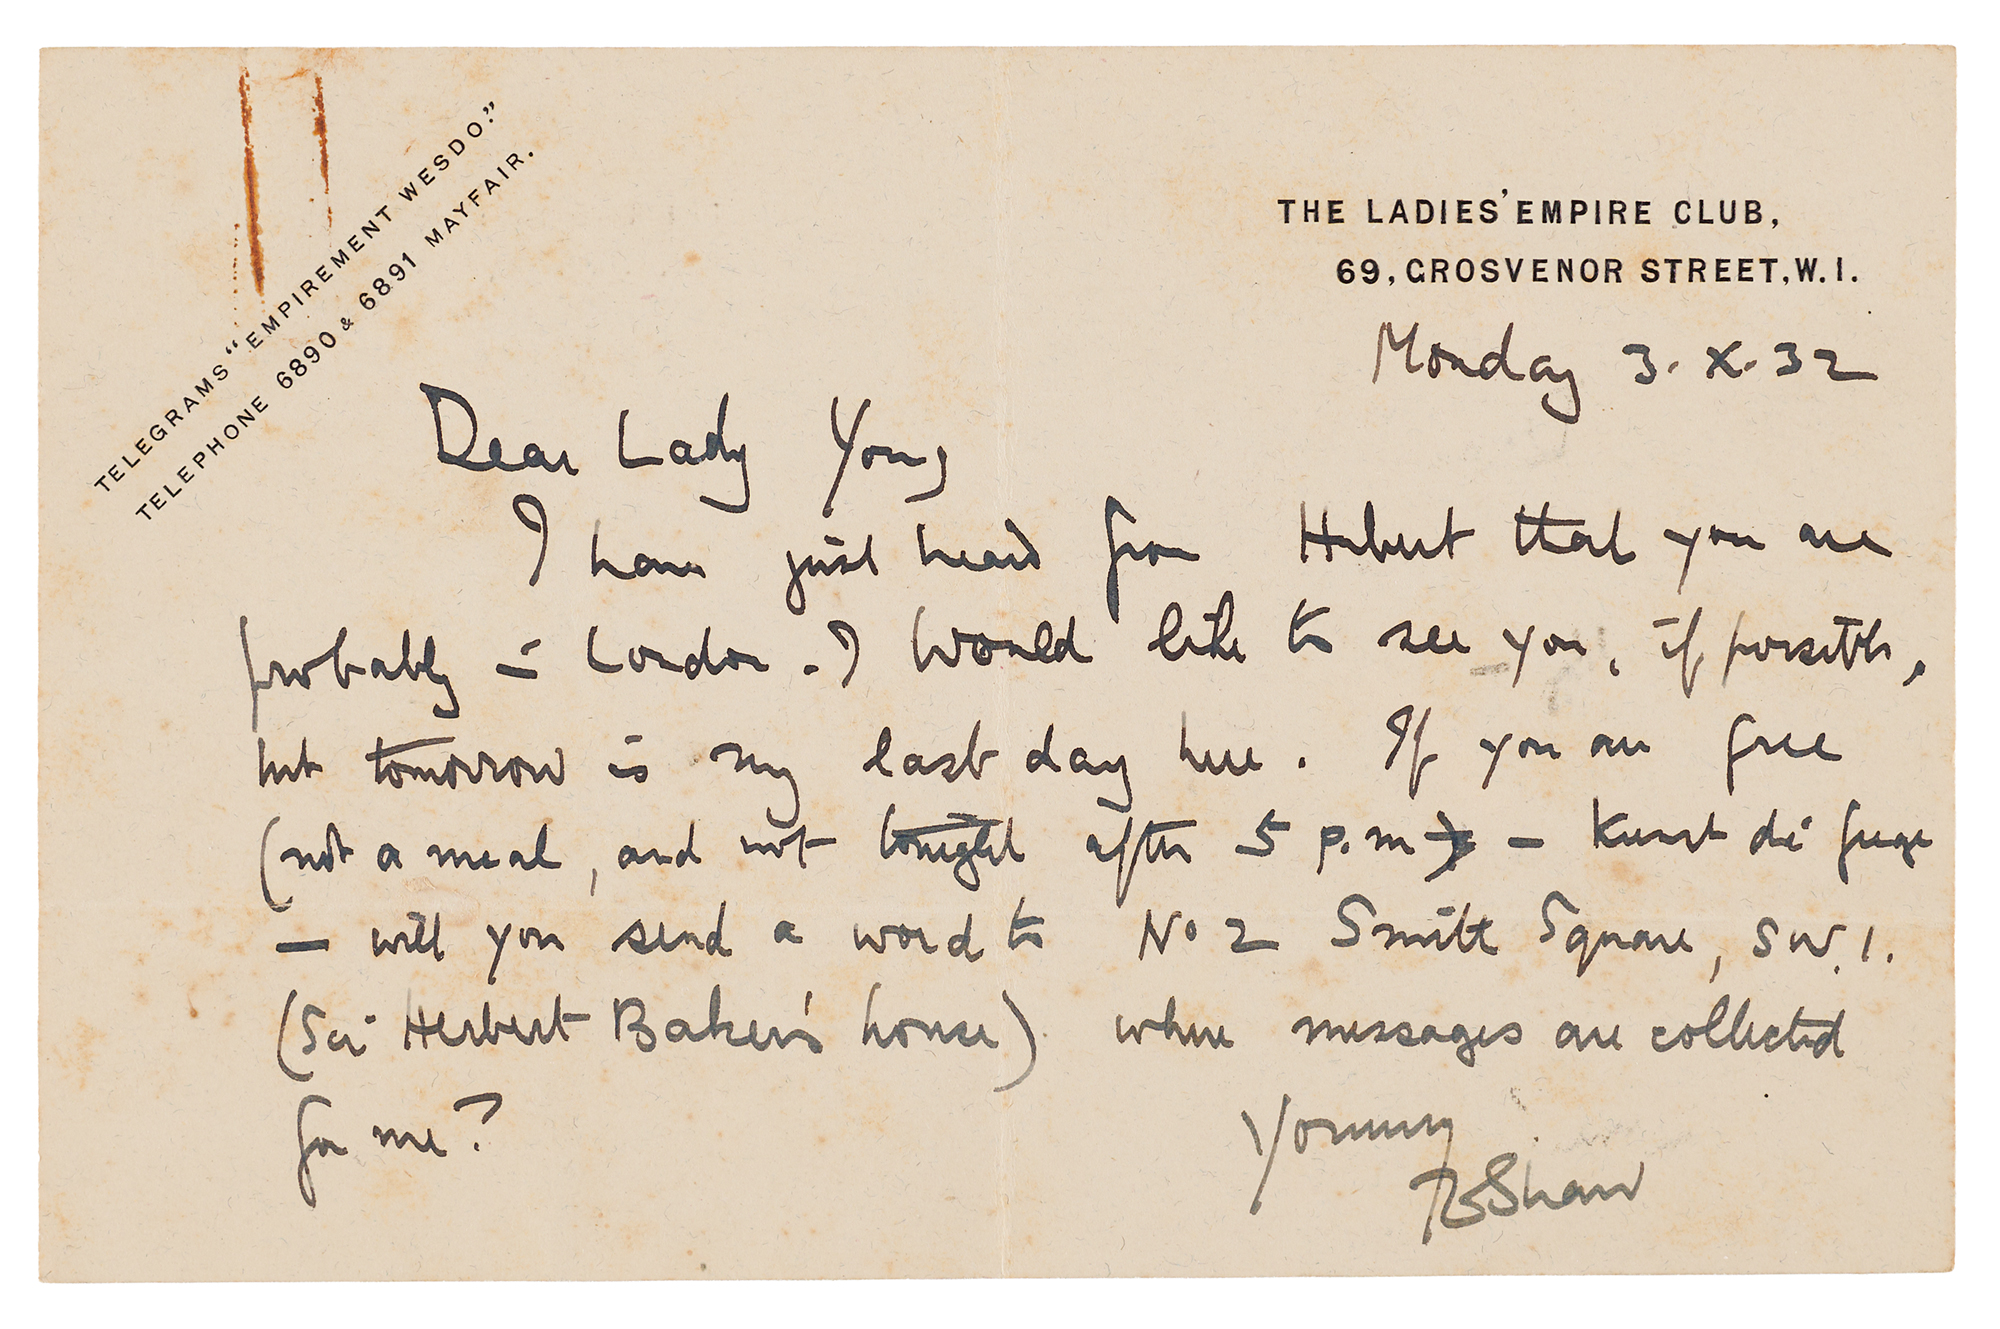 TELEGRAMS "EMPIREMENT WESDO."
TELEPHONE 6890 & 6891 MAYFAIR.
THE LADIES' EMPIRE CLUB,
69, GROSVENOR STREET, W.1.
Monday 3. X. 32
Dear Lady Young
I have just heard from Hubert that you are
probably in London. I would like to see you, if possible,
but tomorrow is my last day here. If you are free
(not a meal, and not tonight after 5 p.m) – Kunst die fuge
– will you send a word to No 2 Smith Square, SW.1.
(Sir Herbert Baker's house) where messages are collected
for me?
Yours
TEShaw